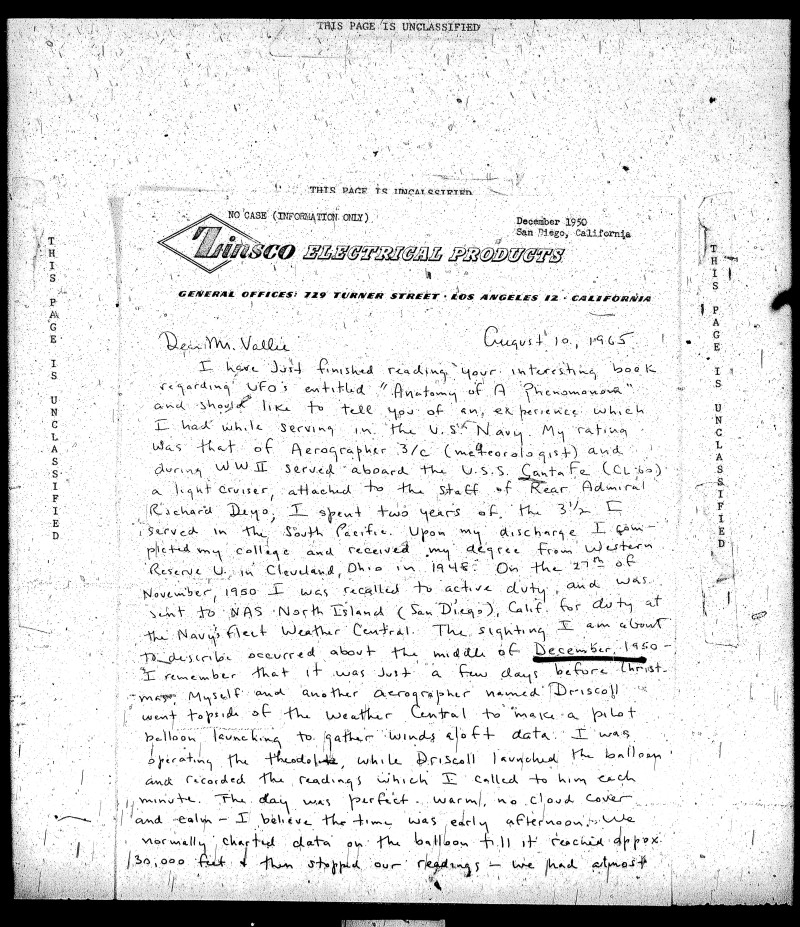 THIS PAGE IS UNCLASSIFIED
THIS PAGE IS UNCALSSIFIED
NO CASE (INFORMATION ONLY)
December 1950
San Diego, California
Zinsco ELECTRICAL PRODUCTS
GENERAL OFFICES: 729 TURNER STREET · LOS ANGELES 12 · CALIFORNIA
THIS PAGE IS UNCLASSIFIED
THIS PAGE IS UNCLASSIFIED
Dear Mr. Vallie
August 10, 1965
I have Just finished reading your interesting book
regarding UFO's entitled "Anatomy of A Phenomonova"
and should like to tell you of an experience which
I had while serving in the U.S. Navy. My rating
was that of Aerographer 3/c (meteorologist) and
during WW II served aboard the U.S.S. Santa Fe (CL-60)
a light cruiser, attached to the staff of Rear Admiral
Richard Deyo, I spent two years of the 3 1/2 I
served in the South Pacific. Upon my discharge I com-
pleted my college and received my degree from Western
Reserve U. in Cleveland, Ohio in 1948. On the 27th of
November, 1950 I was recalled to active duty and was
sent to NAS North Island (San Diego), Calif. for duty at
the Navy's Fleet Weather Central. The sighting I am about
to describe occurred about the middle of December, 1950 -
I remember that it was Just a few days before Christ-
mas. Myself and another aerographer named Driscoll
went topside of the Weather Central to make a pilot
balloon launching to gather winds aloft data. I was
operating the theodolite, while Driscoll launched the balloon
and recorded the readings which I called to him each
minute. The day was perfect - warm, no cloud cover
and calm - I believe the time was early afternoon. We
normally charted data on the balloon till it reached appox.
30,000 feet & then stopped our readings - we had almost